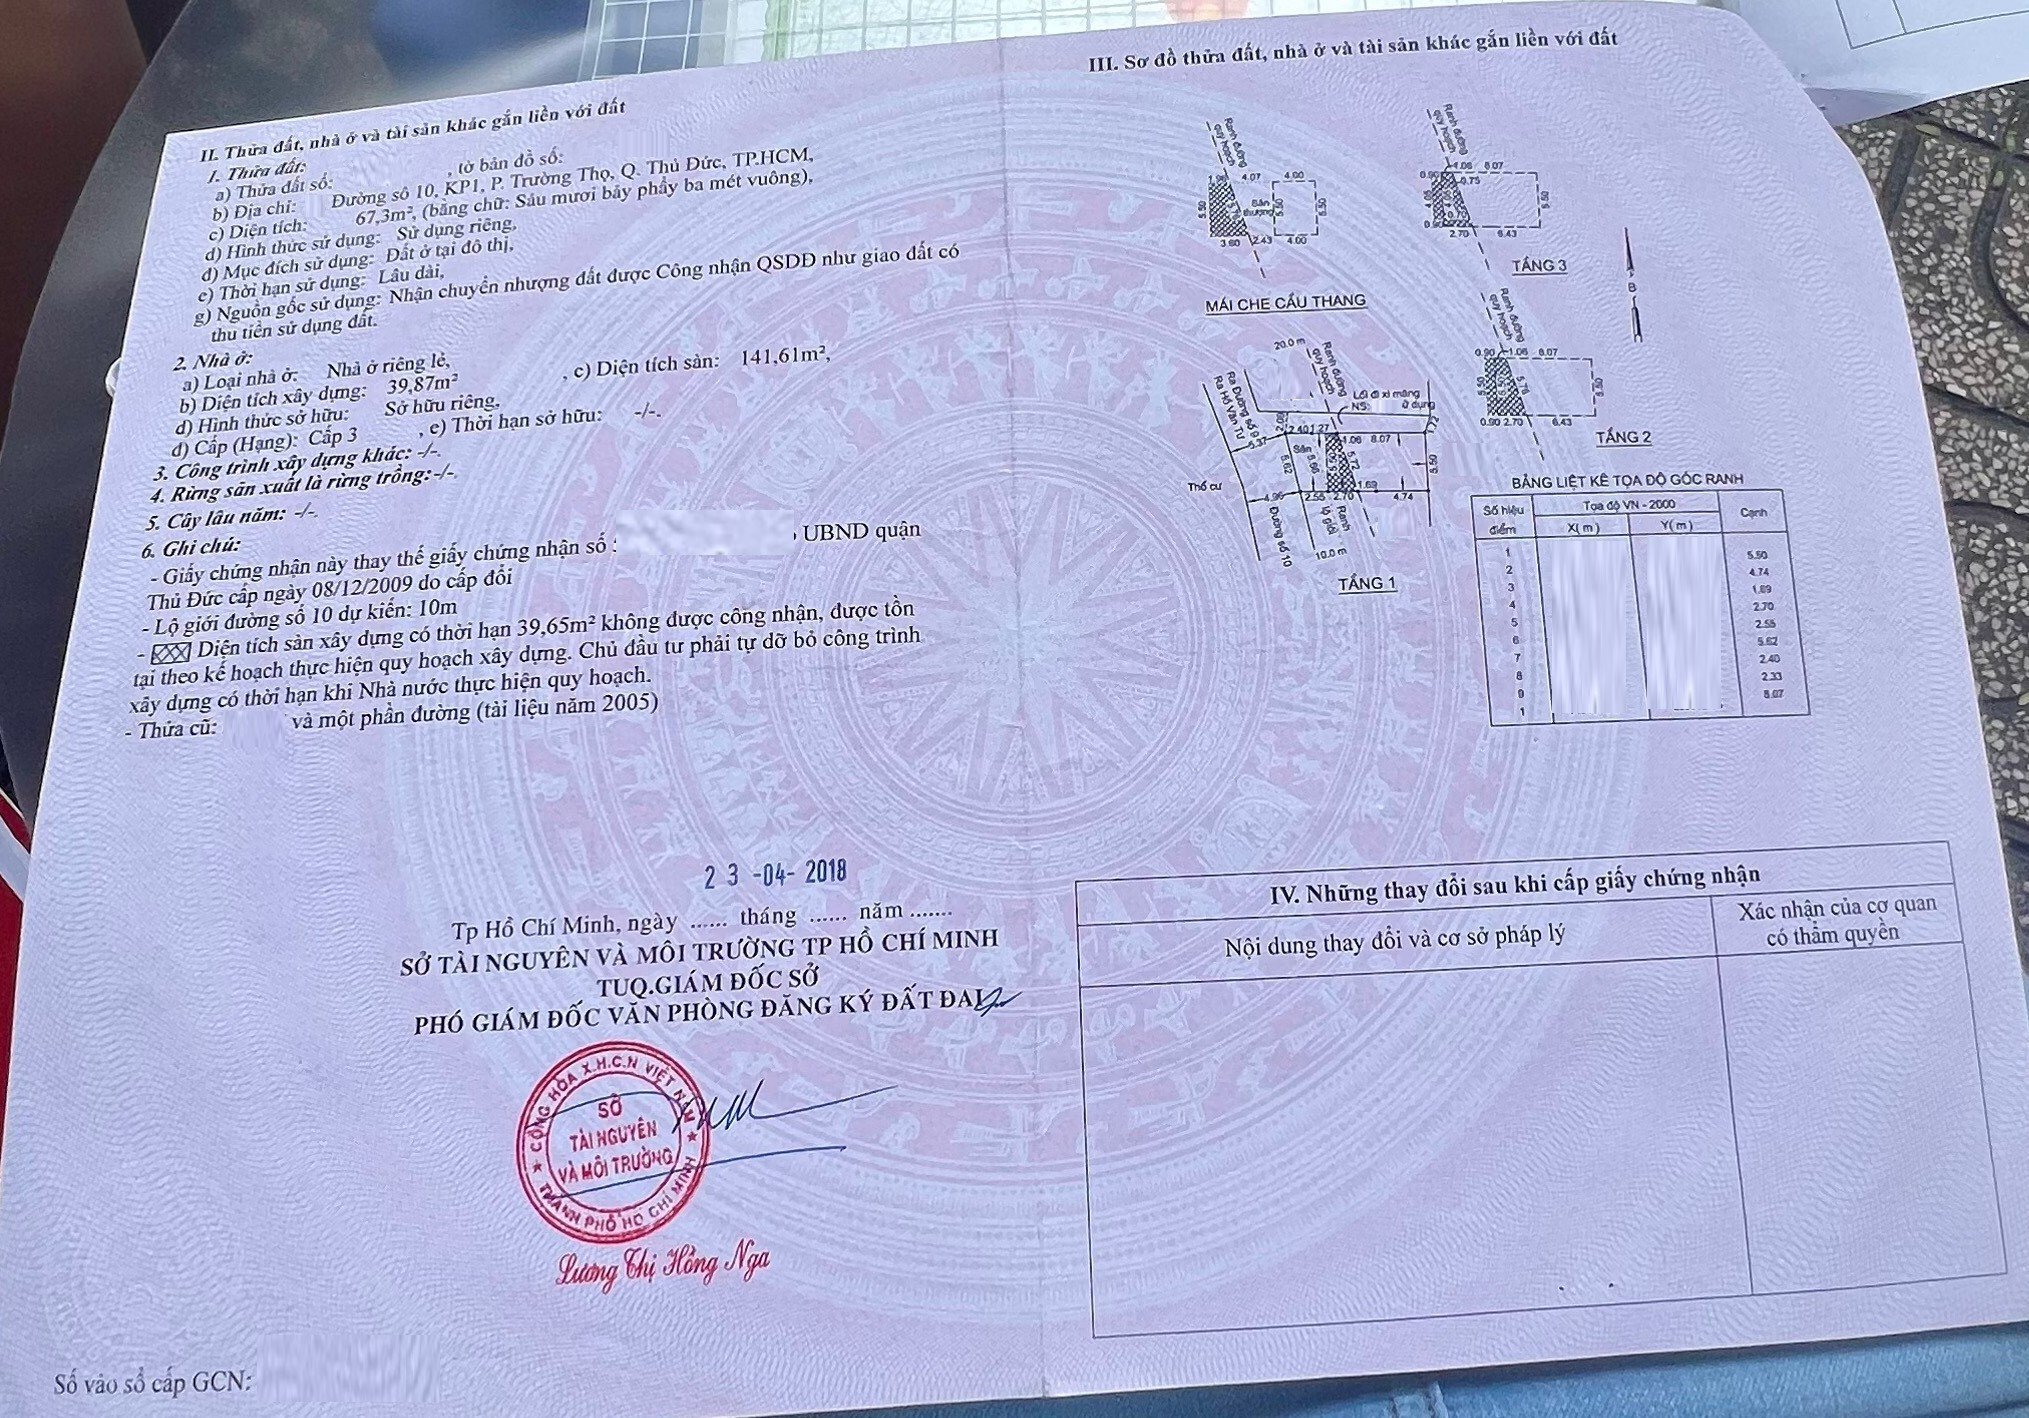 II. Thửa đất, nhà ở và tài sản khác gắn liền với đất
1. Thửa đất:
a) Thửa đất số: , tờ bản đồ số:
b) Địa chỉ: Đường số 10, KP1, P. Trường Thọ, Q. Thủ Đức, TP.HCM,
c) Diện tích: 67,3m², (bằng chữ: Sáu mươi bảy phẩy ba mét vuông),
d) Hình thức sử dụng: Sử dụng riêng,
đ) Mục đích sử dụng: Đất ở tại đô thị,
e) Thời hạn sử dụng: Lâu dài,
g) Nguồn gốc sử dụng: Nhận chuyển nhượng đất được Công nhận QSDĐ như giao đất có
thu tiền sử dụng đất.
2. Nhà ở:
a) Loại nhà ở: Nhà ở riêng lẻ,
b) Diện tích xây dựng: 39,87m² , c) Diện tích sàn: 141,61m²,
d) Hình thức sở hữu: Sở hữu riêng,
đ) Cấp (Hạng): Cấp 3 , e) Thời hạn sở hữu: -/-.
3. Công trình xây dựng khác: -/-.
4. Rừng sản xuất là rừng trồng:-/-.
5. Cây lâu năm: -/-.
6. Ghi chú:
- Giấy chứng nhận này thay thế giấy chứng nhận số UBND quận
Thủ Đức cấp ngày 08/12/2009 do cấp đổi
- Lộ giới đường số 10 dự kiến: 10m
- Diện tích sàn xây dựng có thời hạn 39,65m² không được công nhận, được tồn
tại theo kế hoạch thực hiện quy hoạch xây dựng. Chủ đầu tư phải tự dỡ bỏ công trình
xây dựng có thời hạn khi Nhà nước thực hiện quy hoạch.
- Thửa cũ: và một phần đường (tài liệu năm 2005)
23 -04- 2018
Tp Hồ Chí Minh, ngày ...... tháng ...... năm .......
SỞ TÀI NGUYÊN VÀ MÔI TRƯỜNG TP HỒ CHÍ MINH
TUQ.GIÁM ĐỐC SỞ
PHÓ GIÁM ĐỐC VĂN PHÒNG ĐĂNG KÝ ĐẤT ĐAI
CỘNG HÒA X.H.C.N VIỆT NAM
SỞ
TÀI NGUYÊN
VÀ MÔI TRƯỜNG
THÀNH PHỐ HỒ CHÍ MINH
Lương Thị Hồng Nga
Số vào sổ cấp GCN:
III. Sơ đồ thửa đất, nhà ở và tài sản khác gắn liền với đất
Ranh đường
quy hoạch
4.07 4.00
5.50
Sân
thượng
5.50
5.50
3.60 2.43 4.00
MÁI CHE CẦU THANG
Ranh đường
quy hoạch
0.90 1.06 8.07
0.75
5.50
2.70 6.43
TẦNG 3
B
Ranh đường
quy hoạch
0.90 1.06 8.07
5.50
5.50
0.90 2.70 6.43
TẦNG 2
20.0 m
Ra Đường số 9
Ra Hồ Văn Tư
Ranh đường
quy hoạch
Lối đi xi măng
2.40 1.27
1.06 8.07
Sân
5.62
5.72
5.50
1.72
Thổ cư
4.96
2.55 2.70
1.69
4.74
Đường số 10
Ranh
lộ giới
10.0 m
TẦNG 1
BẢNG LIỆT KÊ TỌA ĐỘ GÓC RANH
Số hiệu
điểm
Tọa độ VN - 2000
X(m) Y(m)
Cạnh
1
5.50
2
4.74
3
1.69
4
2.70
5
2.55
6
5.62
7
2.40
8
2.33
9
8.07
1
IV. Những thay đổi sau khi cấp giấy chứng nhận
Nội dung thay đổi và cơ sở pháp lý
Xác nhận của cơ quan
có thẩm quyền